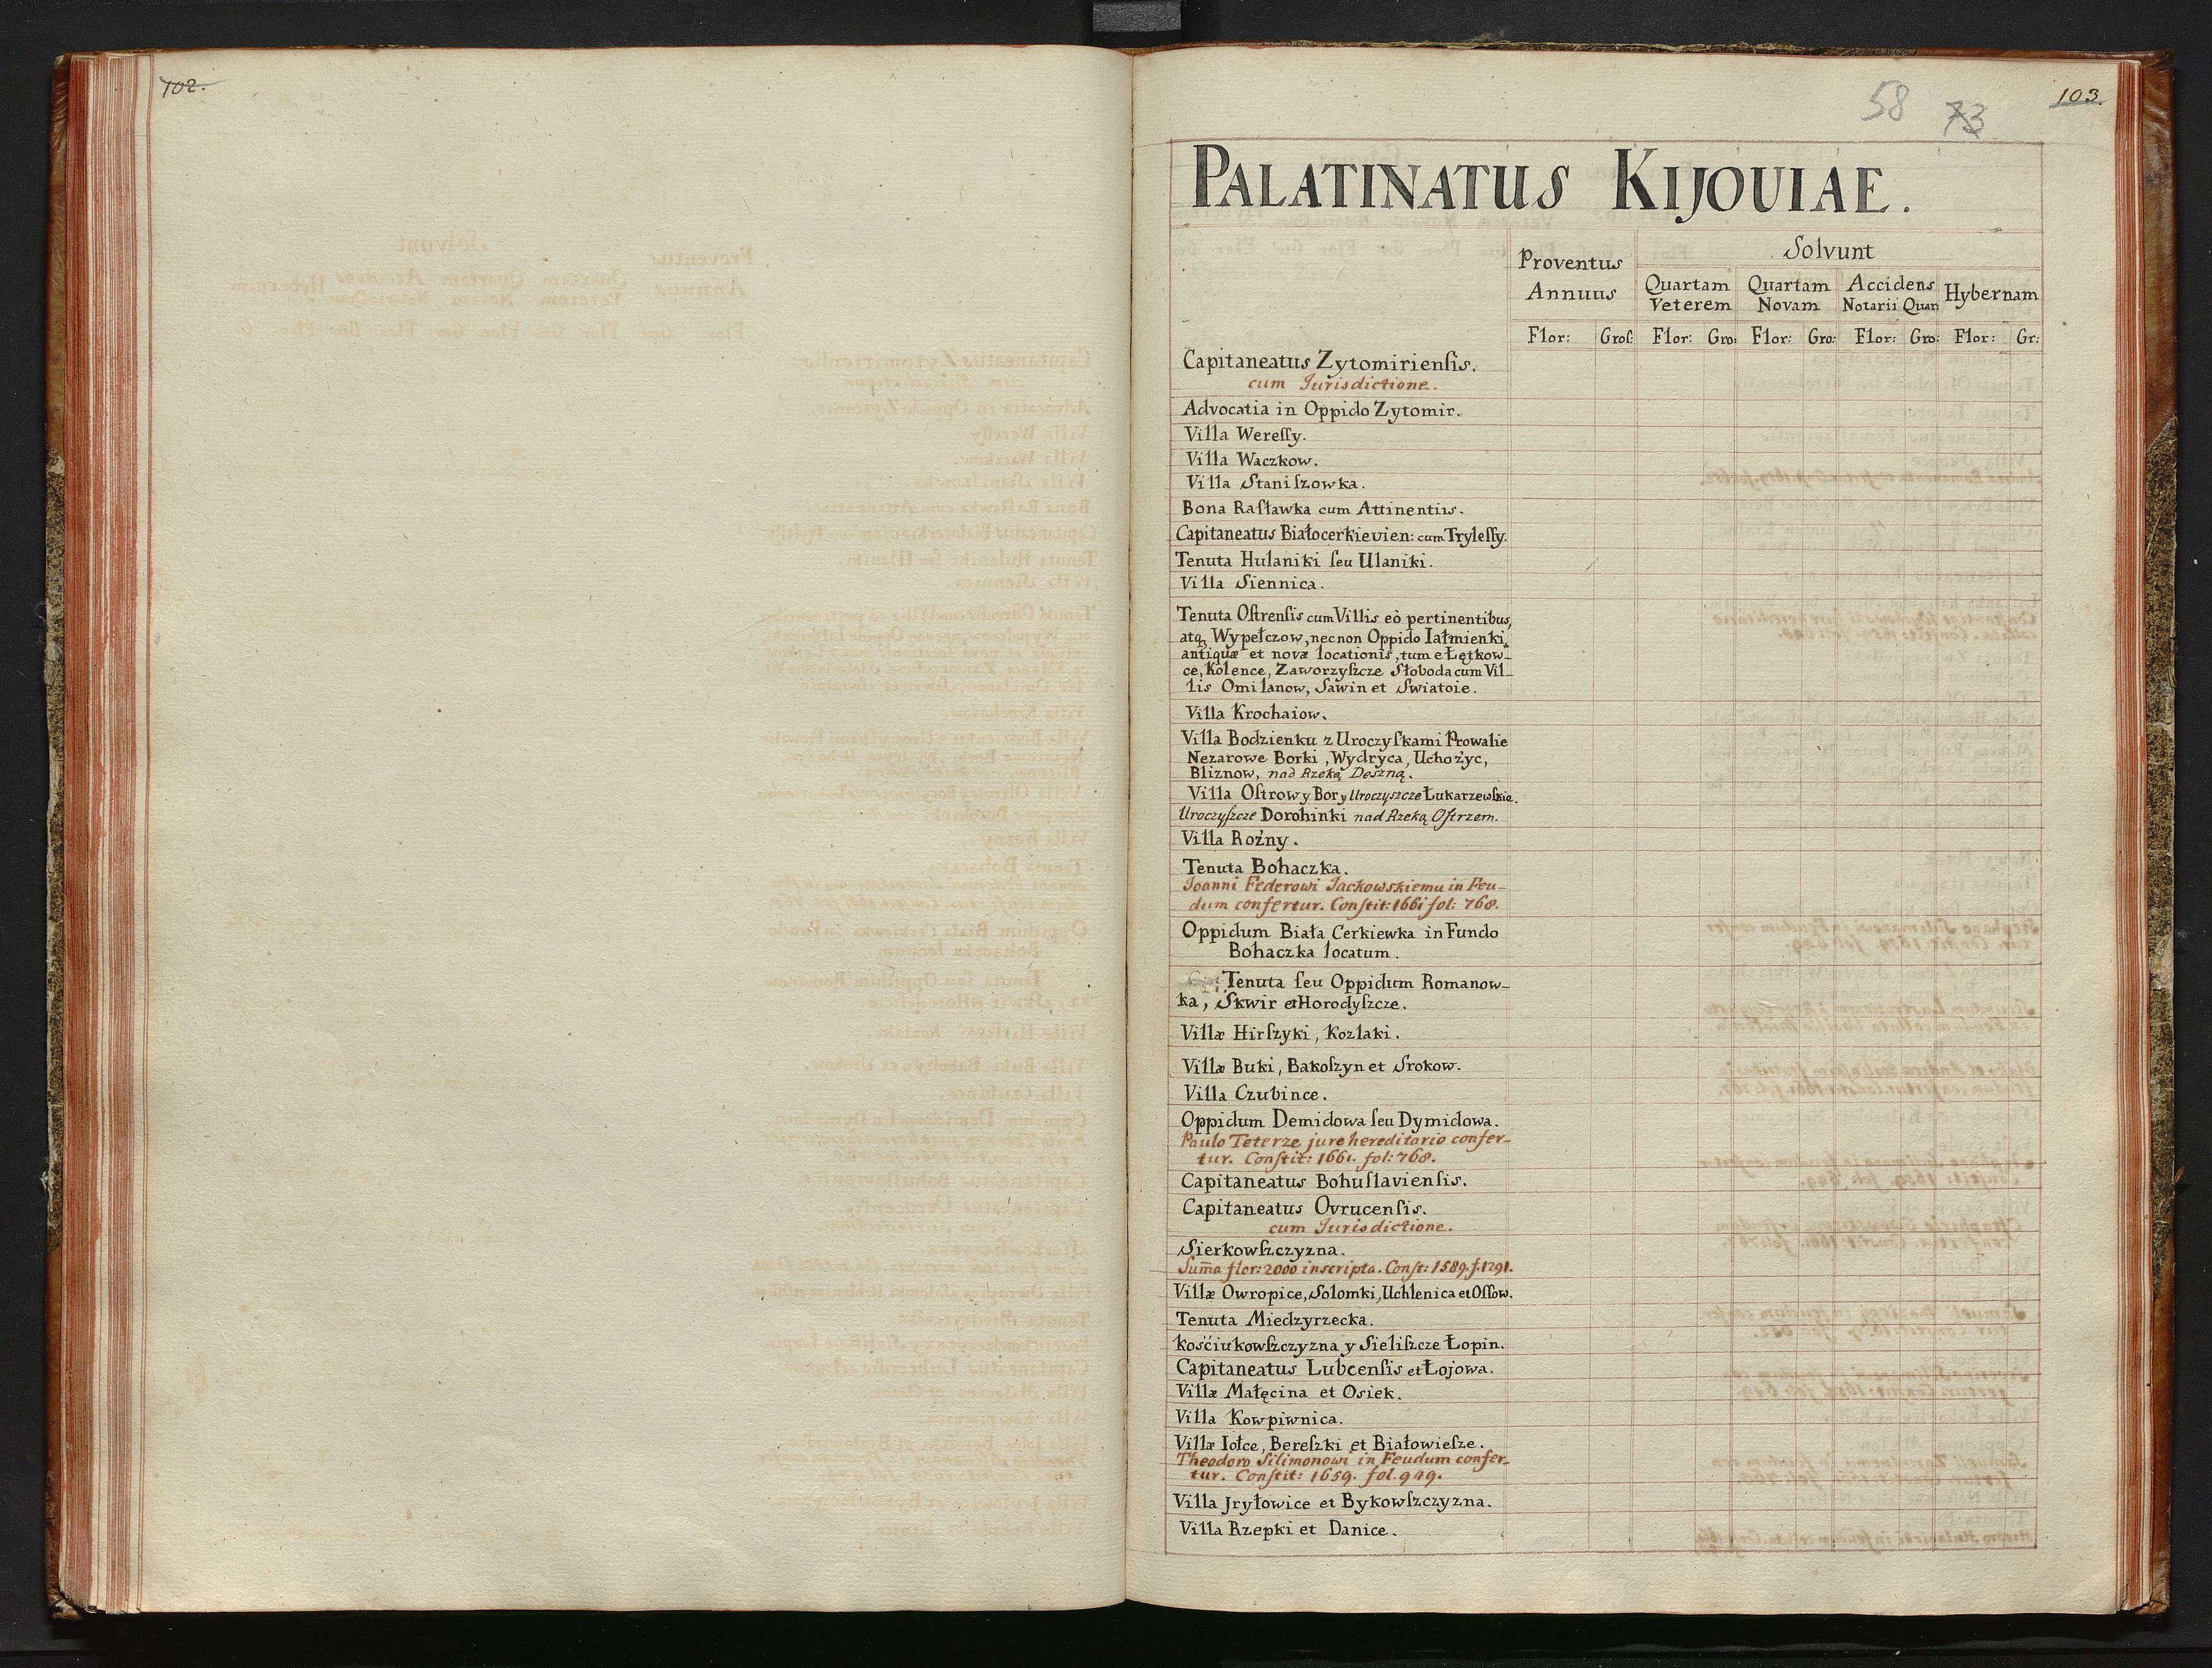 102.
58 73
103.
PALATINATUS KIJOUIAE.
Proventus
Annuus
Solvunt
Quartam
Veterem
Quartam
Novam
Accidens
Notarii Quar
Hybernam
Flor: Groſ: Flor: Gro: Flor: Gro: Flor: Gro: Flor: Gr:
Capitaneatus Zytomirienſis.
cum Jurisdictione.
Advocatia in Oppido Zytomir.
Villa Wereſſy.
Villa Waczkow.
Villa Staniſzowka.
Bona Raſławka cum Attinentiis.
Capitaneatus Białocerkievien: cum Tryleſſy.
Tenuta Hulaniki ſeu Ulaniki.
Villa Siennica.
Tenuta Oſtrenſis cum Villis eò pertinentibus,
atq, Wypełczow, necnon Oppido Iałmienki,
antiquæ et novæ locationis, tum e Łętkow-
ce, Kolence, Zaworzyſzcze Słoboda cum Vil-
lis Omilanow, Sawin et Swiatoie.
Villa Krochaiow.
Villa Bodzienku z Uroczyſkami Prowalie
Nezarowe Borki, Wydryca, Uchożyc,
Bliznow, nad Rzeką Deszną.
Villa Oſtrow y Bor y Uroczyszcze Łukarzewſkie.
Uroczyſzcze Dorohinki nad Rzeką Oſtrzem.
Villa Rożny.
Tenuta Bohaczka.
Joanni Federowi Jackowskiemu in Feu-
dum confertur. Conſtit: 1661 fol: 768.
Oppidum Biała Cerkiewka in Fundo
Bohaczka locatum.
Tenuta ſeu Oppidum Romanow-
ka, Skwir et Horodyſzcze.
Villæ Hirſzyki, Kozlaki.
Villæ Buki, Bakoſzyn et Srokow.
Villa Czubince.
Oppidum Demidowa ſeu Dymidowa.
Paulo Teterze jure hereditario confer-
tur. Conſtit: 1661. fol: 768.
Capitaneatus Bohuſlavienſis.
Capitaneatus Ovrucenſis.
cum Jurisdictione.
Sierkowſzczyzna.
Sum̃a flor: 2000 inscripta. Conſt: 1589. f. 1291.
Villæ Owropice, Solomki, Uchlenica et Oſſow.
Tenuta Miedzyrzecka.
Kośćiukowſzczyzna y Sieliſzcze Łopin.
Capitaneatus Lubcenſis et Łojowa.
Villæ Małęcina et Osiek.
Villa Kowpiwnica.
Villæ Iołce, Bereſzki et Białowieſze.
Theodoro Silimonowi in Feudum confer-
tur. Conſtit: 1659. fol. 949.
Villa Jryłowice et Bykowſzczyzna.
Villa Rzepki et Danice.